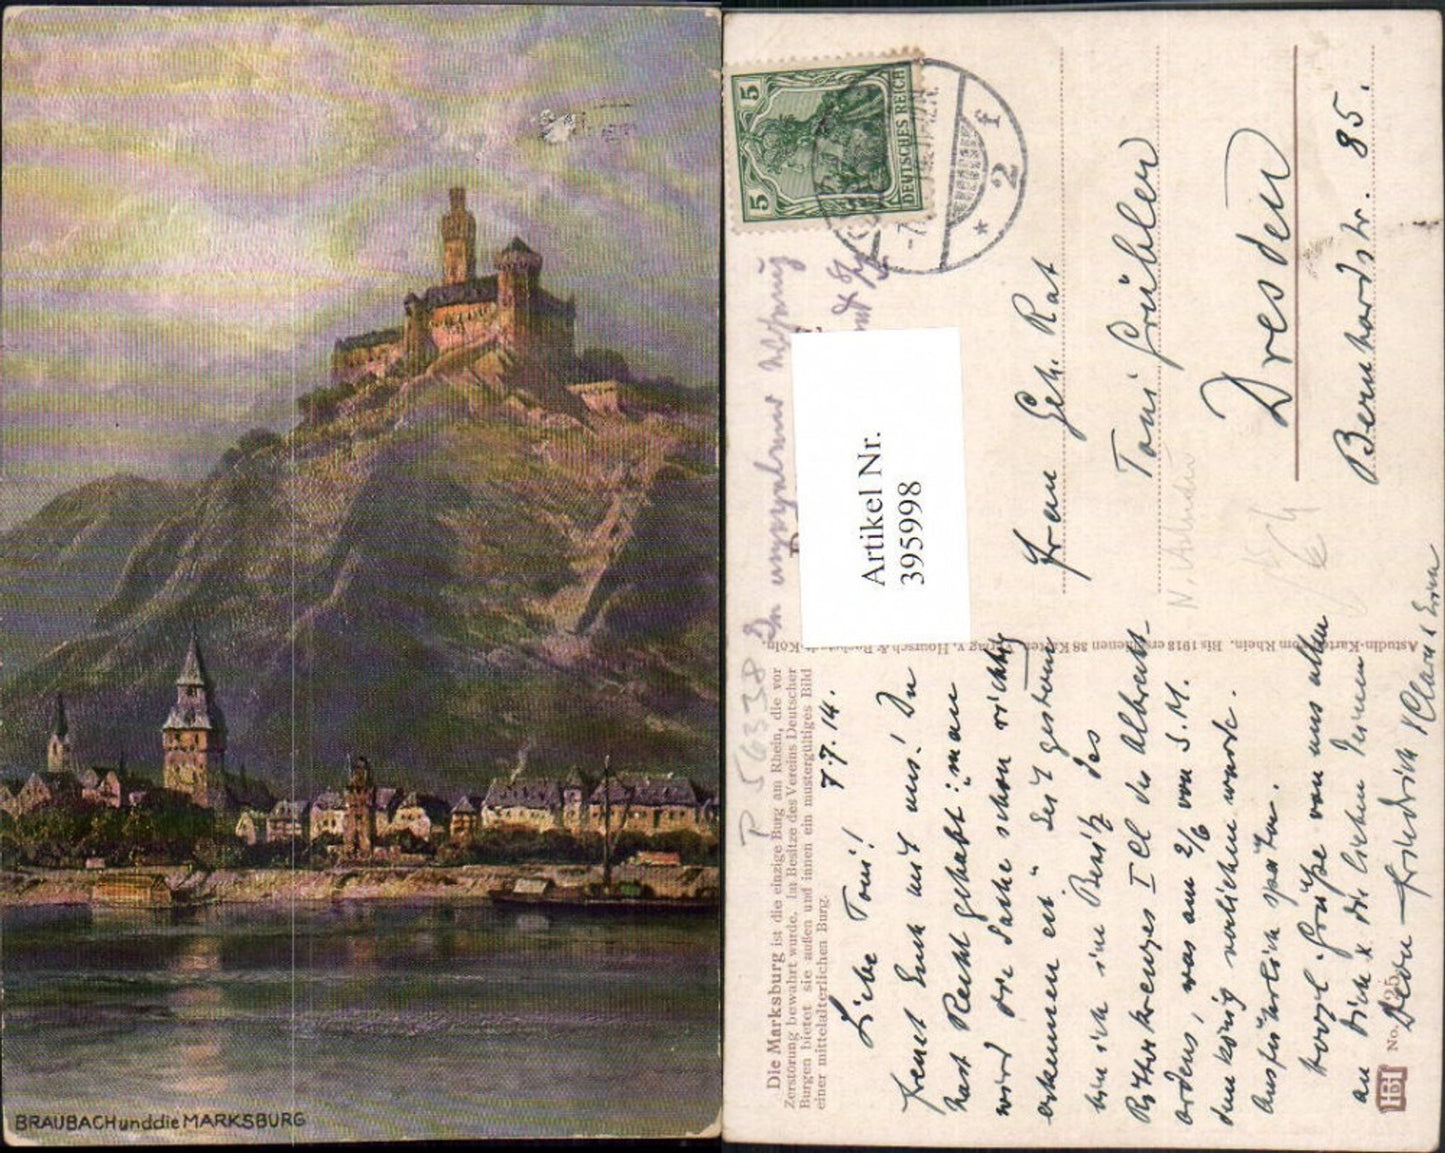 BRAUBACH und die MARKSBURG
5 5
DEUTSCHES REICH
* 2 f
Artikel Nr.
395998
P 56338
Die Marksburg ist die einzige Burg am Rhein, die vor
Zerstörung bewahrt wurde. Im Besitze des Vereins Deutscher
Burgen bietet sie außen und innen ein mustergültiges Bild
einer mittelalterlichen Burg.
Liebe Toni! 7.7.14.
Freut Euch mit uns! Du
hast Recht gehabt: man
wird die Sache schon richtig
erkennen etc. Seit gestern
bin ich im Besitz des
Ritterkreuzes I Cl des Albrechts-
ordens, was am 2/6 von S.M.
dem König verliehen wurde.
Ausführlich später.
Herzl. Grüße von uns allen
an Dich u. die lieben Deinen
Dein Friedrich
Frau Geh. Rat
Toni Grübler
Dresden
Bernhardstr. 85.
Astudin-Karten vom Rhein. Bis 1918 erschienen 38 Karten. Verlag v. Hoursch & Bechstedt, Köln
No. 25
HB